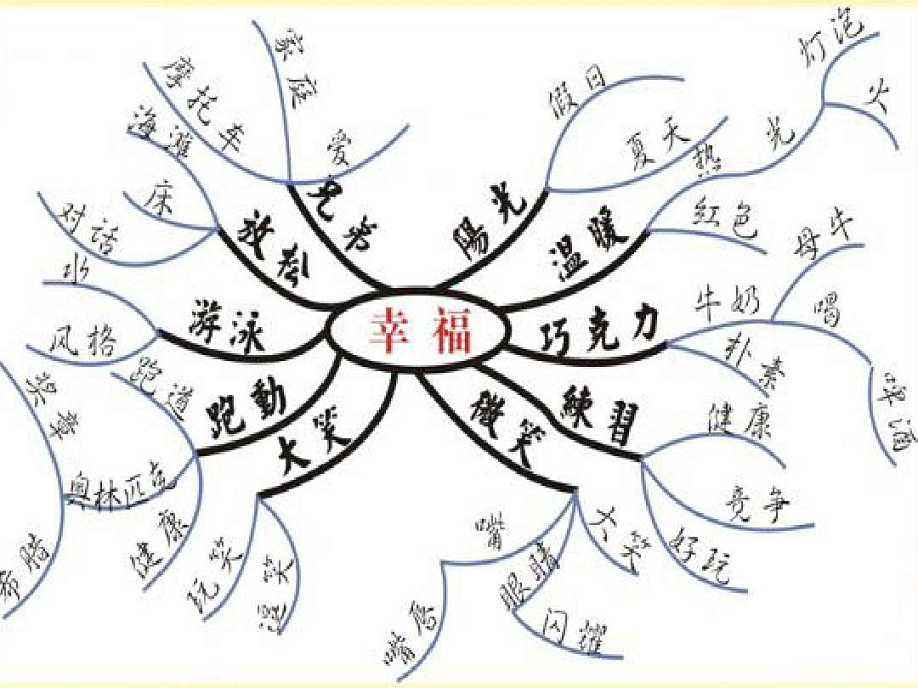 幸福
陽光
假日
夏天
温暖
热
光
灯泡
火
红色
巧克力
牛奶
母牛
喝
啤酒
朴素
練習
健康
竞争
好玩
微笑
大笑
眼睛
闪耀
嘴
嘴唇
大笑
玩笑
逗笑
跑動
跑道
奥林匹克
希腊
健康
游泳
水
风格
放松
海滩
床
对话
兄弟
摩托车
家庭
爱